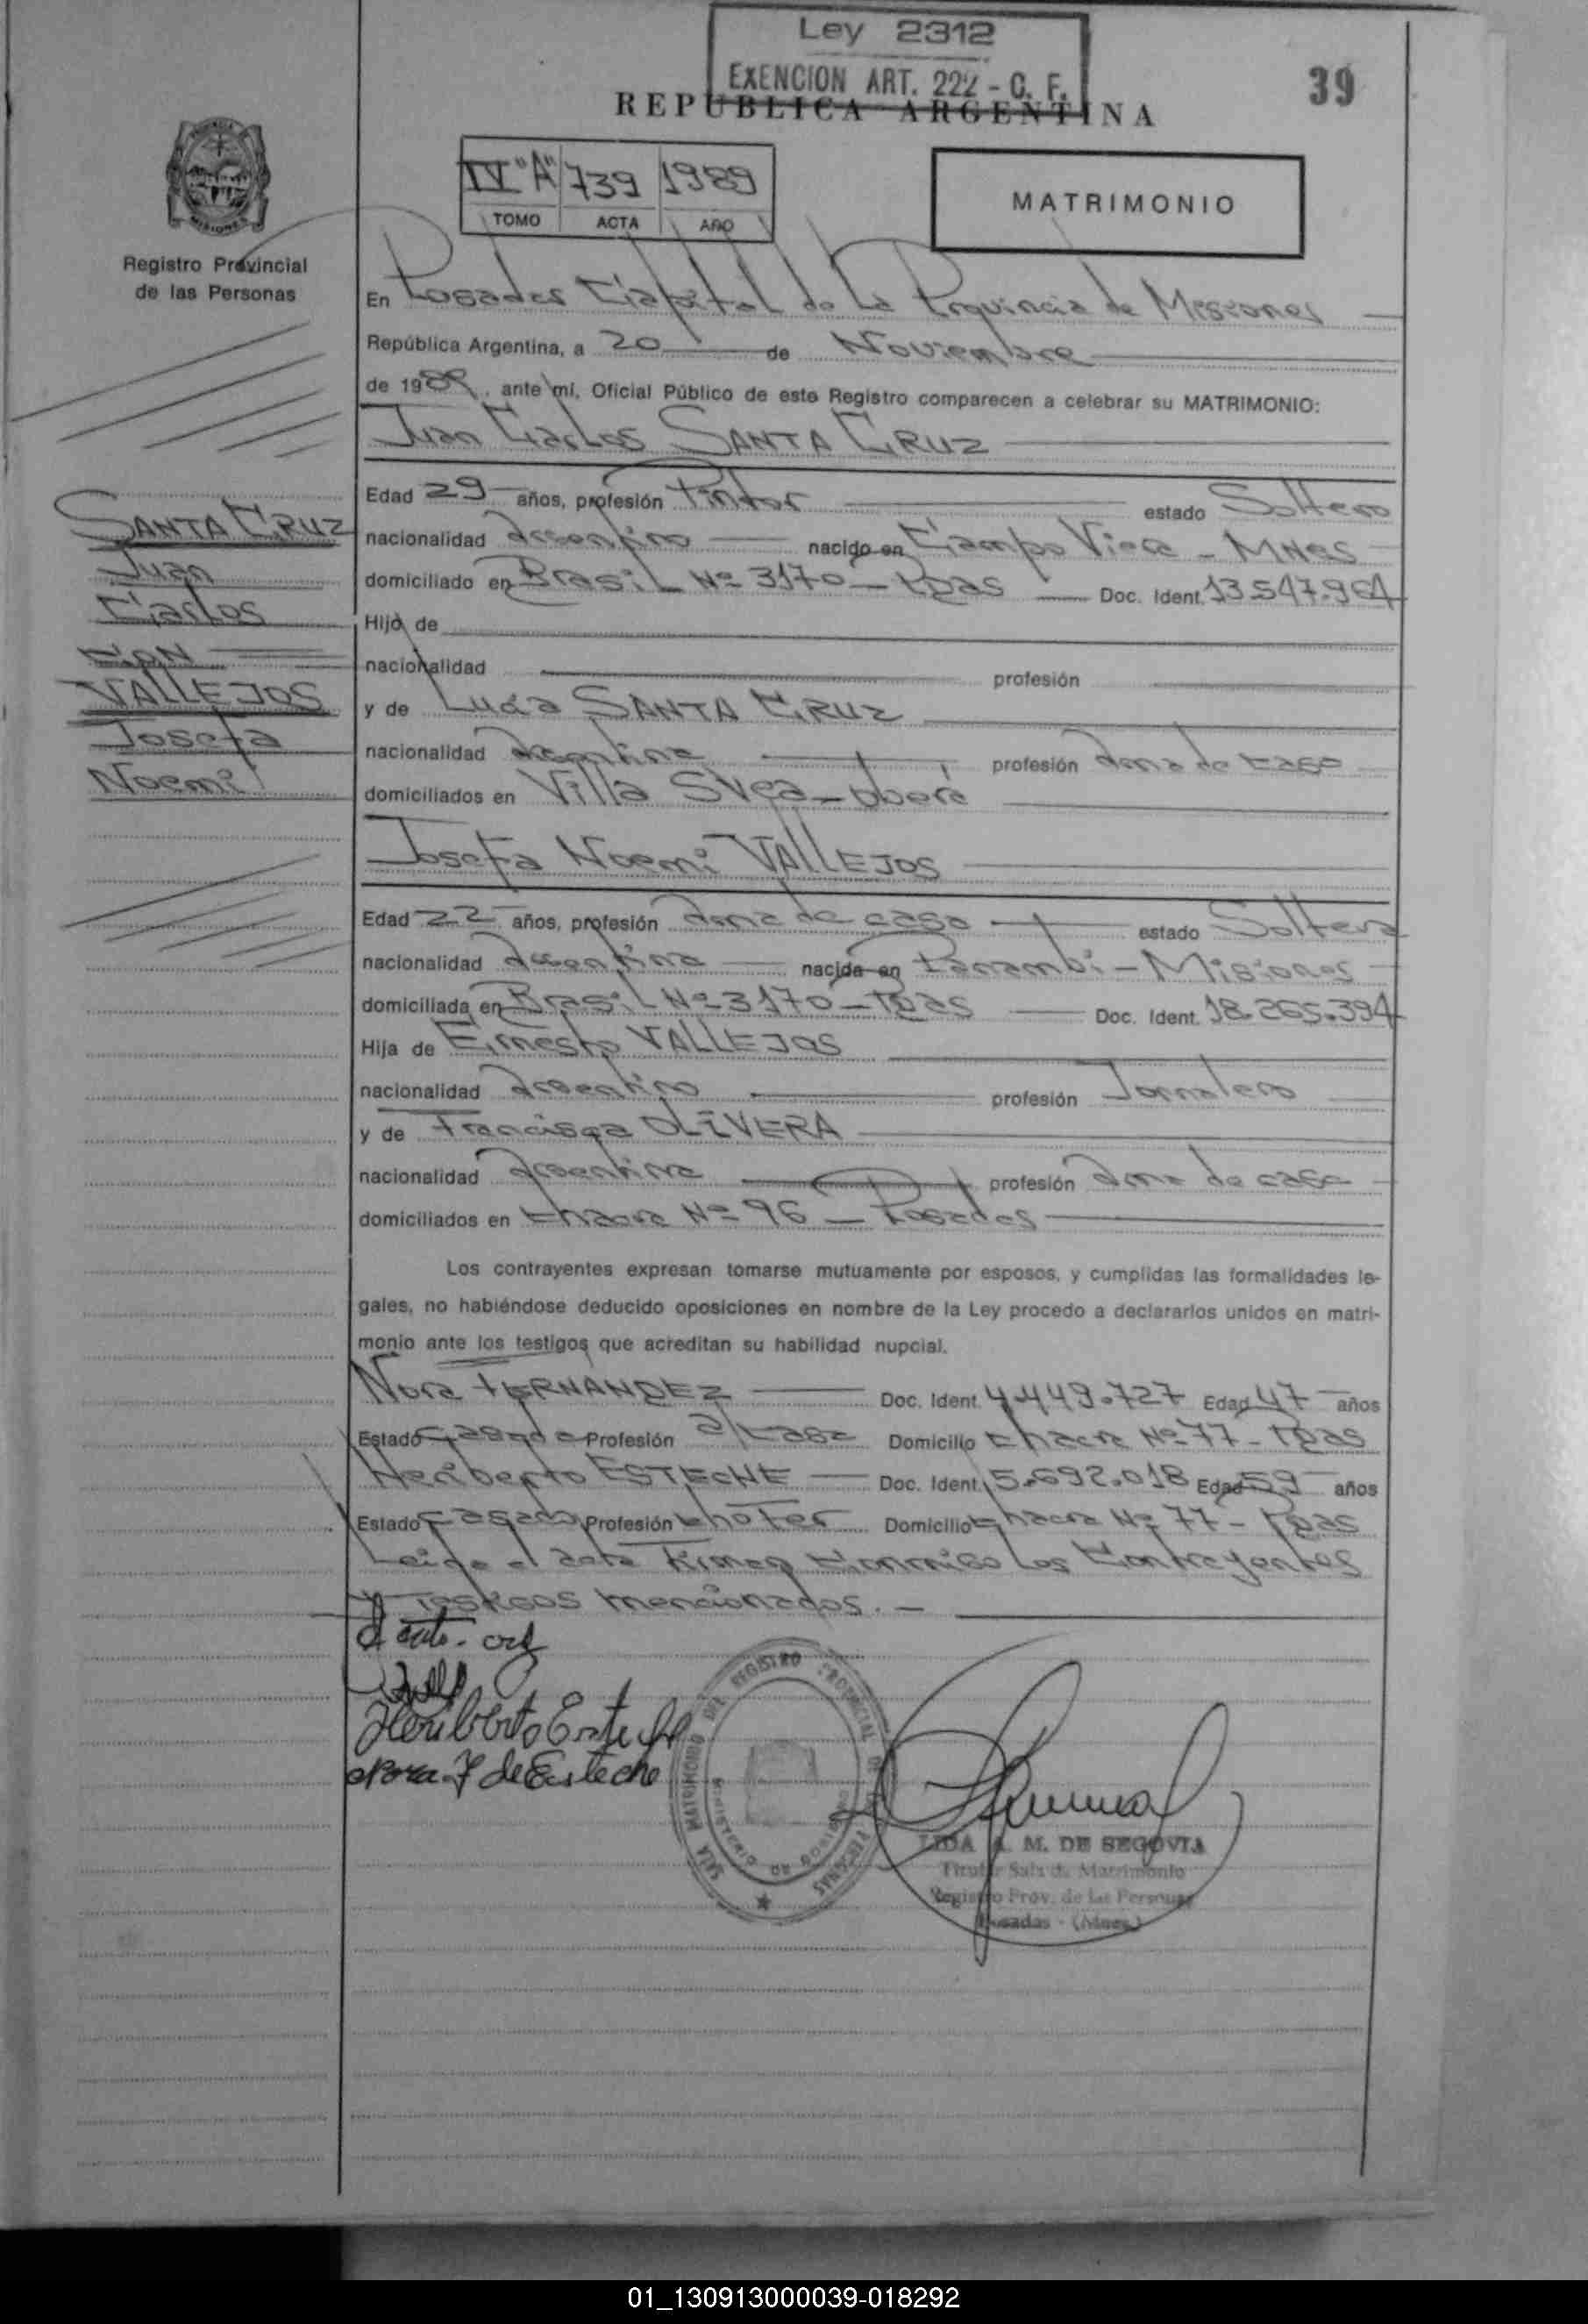 Ley 2312
EXENCION ART. 222 - C. F.
39
REPUBLICA ARGENTINA
IV "A" 739 1989
TOMO ACTA AÑO
MATRIMONIO
MISIONES
Registro Provincial
de las Personas
En Posadas Capital de la Provincia de Misiones
República Argentina, a 20 de Noviembre
de 1989, ante mí, Oficial Público de este Registro comparecen a celebrar su MATRIMONIO:
Juan Carlos SANTA CRUZ
SANTA CRUZ
Juan
Carlos
CON
VALLEJOS
Josefa
Noemi
Edad 29 años, profesión Pintor estado Soltero
nacionalidad argentino nacido en Campo Viera - Mnes
domiciliado en Brasil Nº 3170 - Pdas Doc. Ident. 13.547.964
Hijo de
nacionalidad profesión
y de Lucia SANTA CRUZ
nacionalidad argentina profesión ama de casa
domiciliados en Villa Svea - Oberá
Josefa Noemi VALLEJOS
Edad 22 años, profesión ama de casa estado Soltera
nacionalidad argentina nacida en Panambi - Misiones
domiciliada en Brasil Nº 3170 - Pdas Doc. Ident. 18.265.394
Hija de Ernesto VALLEJOS
nacionalidad argentino profesión Jornalero
y de Francisca OLIVERA
nacionalidad argentina profesión ama de casa
domiciliados en Chacra Nº 96 - Posadas
Los contrayentes expresan tomarse mutuamente por esposos, y cumplidas las formalidades le-
gales, no habiéndose deducido oposiciones en nombre de la Ley procedo a declararlos unidos en matri-
monio ante los testigos que acreditan su habilidad nupcial.
Nora FERNANDEZ Doc. Ident. 4.449.727 Edad 47 años
Estado Casada Profesión a/casa Domicilio Chacra Nº 77 - Pdas
Heriberto ESTECHE Doc. Ident. 5.692.018 Edad 59 años
Estado Casado Profesión Chofer Domicilio Chacra Nº 77 - Pdas
Leida el acta Firman Conmigo los Contrayentes
y Testigos mencionados. -
Heriberto Esteche
Nora F de Esteche
SALA MATRIMONIO DEL REGISTRO PROVINCIAL DE LAS PERSONAS
MINISTERIO DE GOBIERNO
LIDA A. M. DE SEGOVIA
Titular Sala de Matrimonio
Registro Prov. de las Personas
Posadas - (Mnes.)
01_130913000039-018292